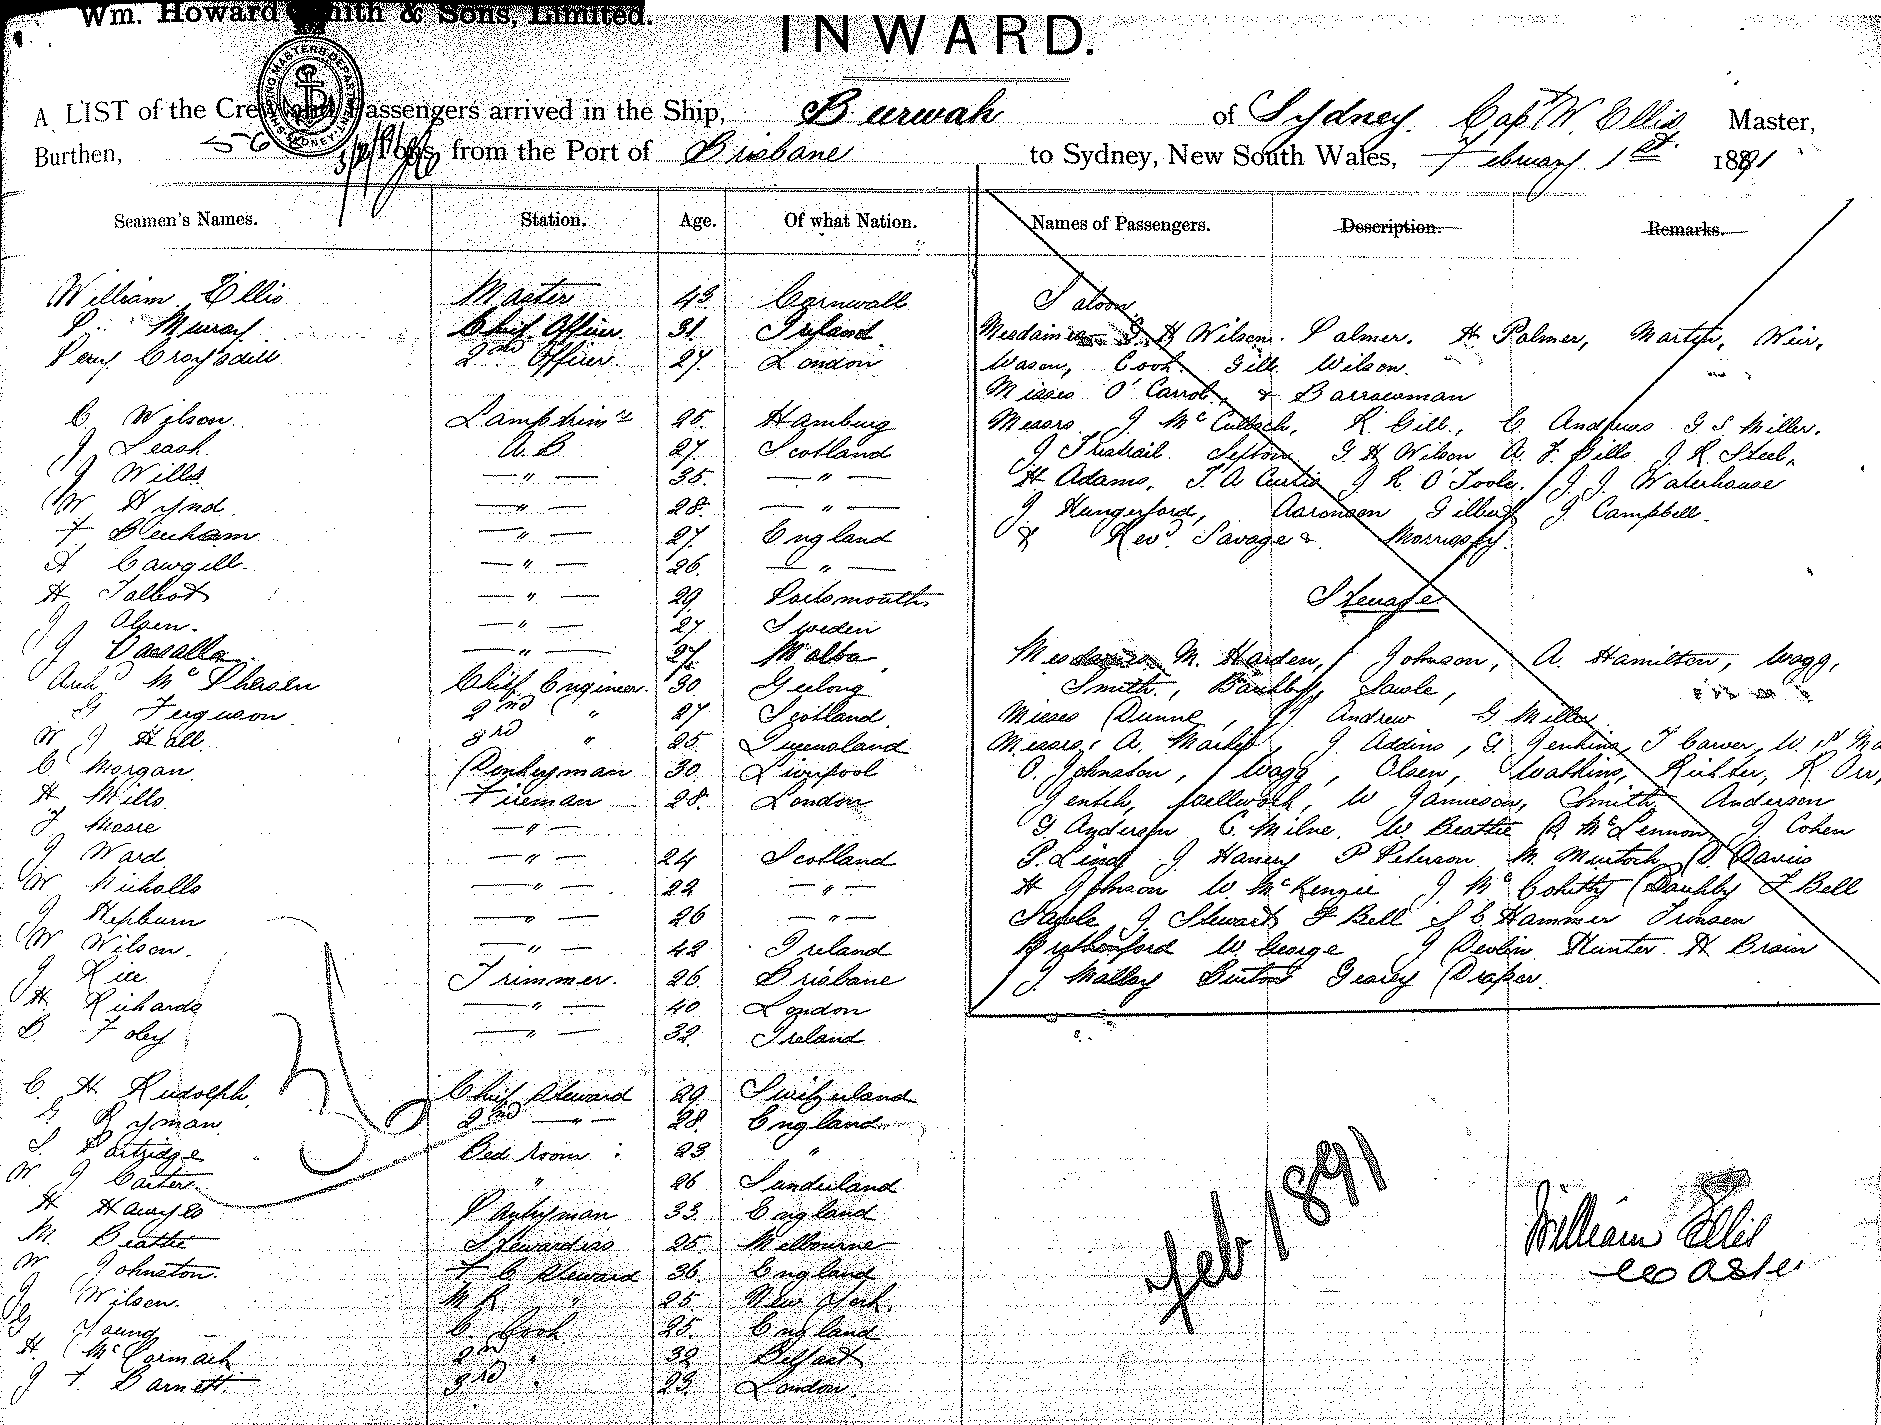 Wm. Howard Smith & Sons, Limited.
INWARD.
A LIST of the Crew and Passengers arrived in the Ship, Burwah of Sydney. Capt W. Ellis Master,
Burthen, 56 Tons, from the Port of Brisbane to Sydney, New South Wales, February 1st 1891
Seamen's Names. Station. Age. Of what Nation. Names of Passengers. Description. Remarks.
William Ellis Master 43 Cornwall
P. Murray Chief Officer 31 Ireland
Percy Croysdill 2nd Officer 27 London
C Wilson Lamptrimr 25 Hamburg
J Leash A.B 27 Scotland
J Wills — " — 35 — " —
W Hynd — " — 28 — " —
F Denham — " — 27 England
A Cawgill — " — 26 — " —
H Talbot — " — 29 Portsmouth
J Olsen — " — 27 Sweden
J Vassalla — " — 27 Malta
Archd McPhersen Chief Engineer 30 Geelong
G Ferguson 2nd " 27 Scotland
W J Hall 3rd " 25 Queensland
C Morgan Donkeyman 30 Liverpool
H Mills Fireman 28 London
J Moore — " —
J. Ward — " — 24 Scotland
W Nicholls — " — 22 — " —
J Hepburn — " — 26 — " —
W Wilson — " — 42 Ireland
J Rice Trimmer 26 Brisbane
H Richards — " — 40 London
D Foley — " — 32 Ireland
C. H. Rudolph Chief Steward 29 Switzerland
G Ryman 2nd — " — 28 England
S. Partridge Bed room : 23 "
W J Carter " 26 Sunderland
H Hawyes Pantryman 33 England
M. Beattie Stewardess 25 Melbourne
W Johnston F C Steward 36 England
J Wilson M R " 25 New York
G Young C. Cook 25 England
H McCormack 2nd " 32 Belfast
J F. Barnett 3rd " 23 London
Saloon
Mesdames G. H Wilson. Palmer. H Palmer, Martin, Weir,
Wason, Cook. Gill. Wilson.
Misses O'Carrol, & Barrowman
Messrs J McCulloch, R. Gill, C Andrews G S Miller.
J Trestrail Sefton G. H Wilson A. F. Pills J R Steel,
H Adams, T. A Curtis J R. O'Toole. J J. Waterhouse
J Hungerford, Aaronsen Gilbert J Campbell
& Revd. Savage & Morrissey.
Steerage
Mesdames M. Harden, Johnson, A. Hamilton, Wagg,
Smith, Saole,
Misses Dunne, J. Andrew G. Miller
Messrs. A. Martin, J. Addins, G. Jenkins, T Carver, W. Ma
O. Johnston, Wagg, Olsen, Watkins, Richter, R Orr,
Jentch, W Jamieson, Smith Anderson
G. Anderson C. Milne W. Beattie McLennon J. Cohen
P. Lind J Harvey P Peterson M. Murtoch D. Davies
H Johnson W McKenzie J Bell
Saole J. Stewart F Bell S C Hammer Tronsen
Rutherford W George J Devlin Hunter H Brain
J. Malloy Burton Gearey Draper.
Feb 1891
William Ellis
Master